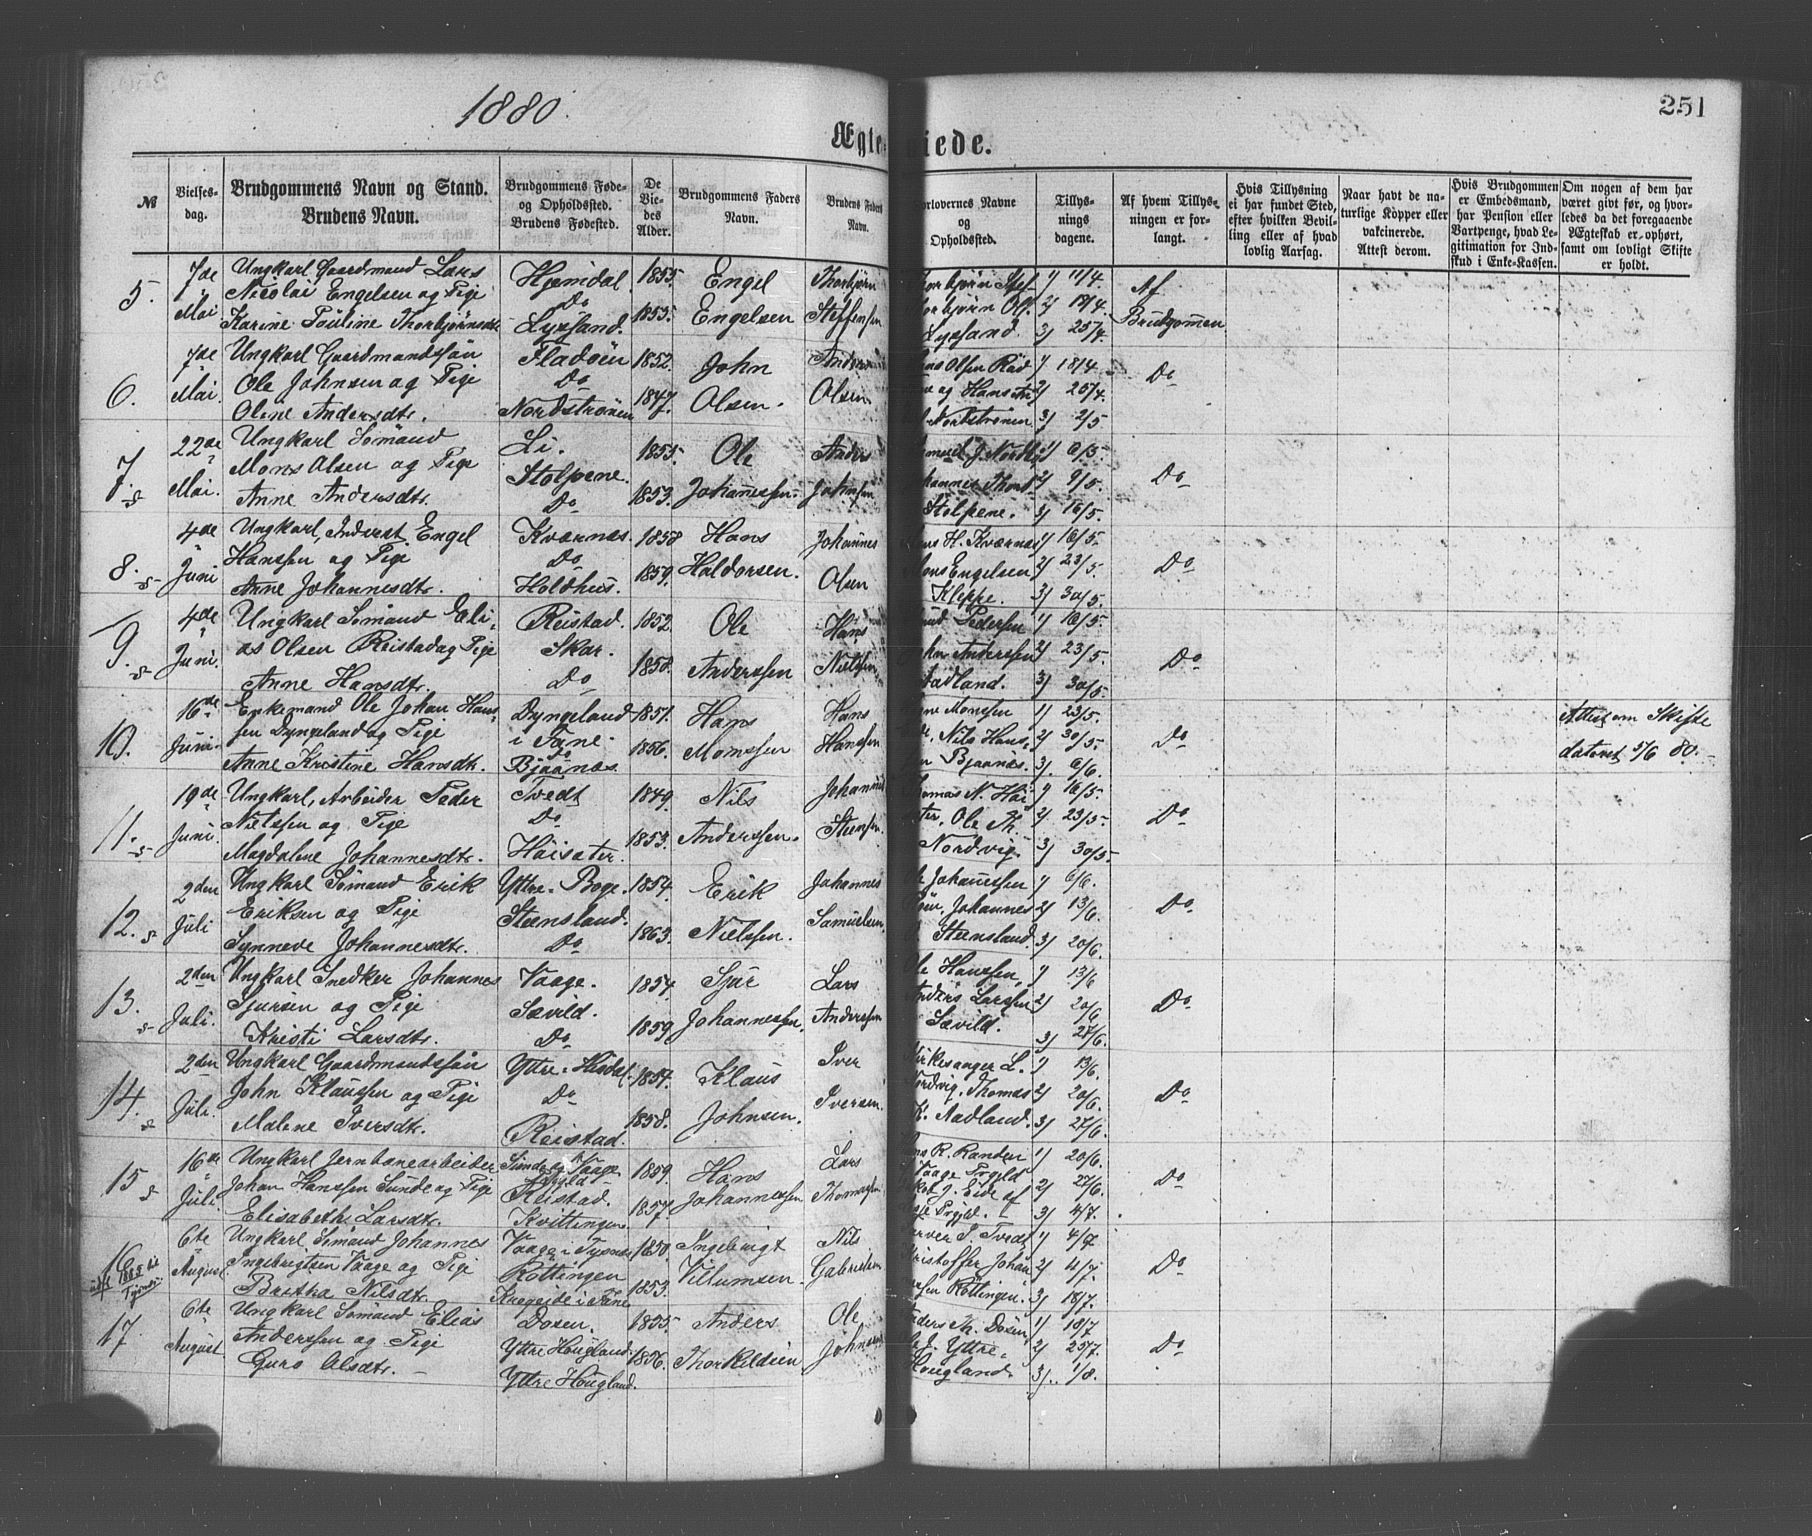 1880.
251
Ægte
iede.
№
Vielses-
dag.
Brudgommens Navn og Stand.
Brudens Navn.
Brudgommens Føde-
og Opholdssted.
Brudens Fødested.
De
Vie-
des
Alder.
Brudgommens Faders
Navn.
Brudens Faders
Navn.
Forlovernes Navne
og
Opholdssted.
Tillys-
nings
dagene.
Af hvem Tillys-
ningen er for-
langt.
Hvis Tillysning
ei har fundet Sted,
efter hvilken Bevil-
ling eller af hvad
lovlig Aarsag.
Naar havt de na-
turlige Kopper eller
vakcinerede.
Attest derom.
Hvis Brudgommen
er Embedsmand,
har Pension eller
Vartpenge, hvad Le-
gitimation for Ind-
skud i Enke-Kassen.
Om nogen af dem har
været givt før, og hvor-
ledes da det foregaaende
Ægteskab er ophørt,
samt om lovligt Skifte
er holdt.
5. 7de Mai
Ungkarl Gaardmand Lars
Nicolai Engelsen og Pige
Karine Pauline Thorbjørnsdtr
Hjemdal
Do
Lyssand.
1855.
1853.
Engel
Engelsen
Thorbjørn
Steffensen
Thorbjørn Stef
Thorbjørn Ols
Lyssand.
1) 11/4.
2) 18/4.
3) 25/4.
Af
Brudgommen
6. 7de Mai.
Ungkarl Gaardmandssøn
Ole Johnsen og Pige
Olene Andersdtr.
Fladøen
Do
Nordstrønen
1852.
1847.
John
Olsen.
Anders
Olsen
Olsen Rød
og Hans A
Nordstrønen
1) 18/4
2) 25/4.
3) 2/5
Do
7. 22de Mai.
Ungkarl Sømand
Mons Olsen og Pige
Anne Andersdtr.
Li.
Stolpene.
Do
1855.
1853.
Ole
Johannessen.
Anders
Johnsen
J. Nordvig
Johannes Thor
Stolpene.
1) 6/5.
2) 9/5.
3) 16/5.
Do
8. 4de Juni
Ungkarl, Inderst Engel
Hanssen og Pige
Anne Johannesdtr.
Kværnæs
Do
Holdhus.
1858
1859.
Hans
Haldorsen.
Johannes
Olsen
Hans H. Kværnæs
Mons Engelsen
Kleppe.
1) 16/5.
2) 23/5.
3) 30/5.
Do
9. 4de Juni.
Ungkarl Sømand Eli-
as Olsen Reistad og Pige
Anne Hansdtr.
Reistad.
Skar.
Do
1852.
1858.
Ole
Anderssen
Hans
Nielssen
Pedersen
John Anderssen
Aadland.
1) 16/5.
2) 23/5.
3) 30/5.
Do
10. 16de Juni
Enkemand Ole Johan Hans-
sen Dyngeland og Pige
Anne Kristine Hansdtr.
Dyngeland
i Fane.
Do
Bjaanæs.
1851.
1856.
Hans
Monssen
Hans
Hanssen
Monssen
Nils Hans
Bjaanæs.
1) 23/5.
2) 30/5.
3) 6/6.
Do
Attest om Skifte
dateret 5/6 80.
11. 19de Juni.
Ungkarl, Arbeider Peder
Nielssen og Pige
Magdalene Johannesdtr.
Tvedt
Do
Høisæter.
1849.
1853.
Nils
Anderssen.
Johannes
Steensen.
Thomas N. Høi
sæter, Ole Th.
Nordvig.
1) 16/5.
2) 23/5.
3) 30/5.
Do
12. 2den Juli
Ungkarl Sømand Erik
Eriksen og Pige
Synneve Johannesdtr.
Yttre Boge.
Steensland.
Do
1854.
1863.
Erik
Nielssen.
Johannes
Samuelsen,
Johannessen
Johannes
Steensland.
1) 6/6.
2) 13/6.
3) 20/6.
Do
13. 2den Juli.
Ungkarl Snedker Johannes
Sjursen og Pige
Kristi Larsdtr.
Vaage.
Sævild.
Do
1854.
1859.
Sjur
Johannessen.
Lars
Anderssen
Ole Hanssen,
Anders Larssen
Sævild.
1) 13/6
2) 20/6
3) 27/6.
Do
14. 2den Juli.
Ungkarl Gaardmandssøn
John Klaussen og Pige
Malene Iversdtr.
Yttre Hisdal.
Do
Reistad.
1857.
1858.
Klaus
Johnsen.
Iver
Iversen.
Kirkesanger L.
Nordvig, Thomas
K. Aadland.
1) 13/6.
2) 20/6.
3) 27/6.
Do
15. 16de Juli.
Ungkarl Jernbanearbeider
Johan Hanssen Sunde og Pige
Elisabeth Larsdtr.
Sunde Vaage
Reistad.
Kvittingen
1859.
1857.
Hans
Johannessen
Lars
Thomassen
R. Randen
Vaage Prgjld
J. Eide af
Prgjld.
1) 20/6.
2) 27/6.
3) 4/7.
Do
16. 6te August
Ungkarl Sømand Johannes
Ingebrigtsen Vaage og Pige
Britha Nilsdtr.
Vaage i Tysnæs
Røttingen
Krogeide i Fane
1850.
1853.
Ingebrigt
Villumsen.
Nils
Gabrielsen
S. Tvedt
Kristoffer Johan
nsen Røttingen.
1) 4/7
2) 4/7.
3) 18/7.
Do
17. 6te August
Ungkarl Sømand Elias
Anderssen og Pige
Guro Olsdtr.
Døsen.
Yttre Hougland.
Yttre Hougland.
1855.
1856.
Anders
Thorkildsen
Ole
Johnsen
Anders Th. Døsen,
Yttre
Hougland.
1) 18/7
2) 25/7.
3) 1/8.
Do